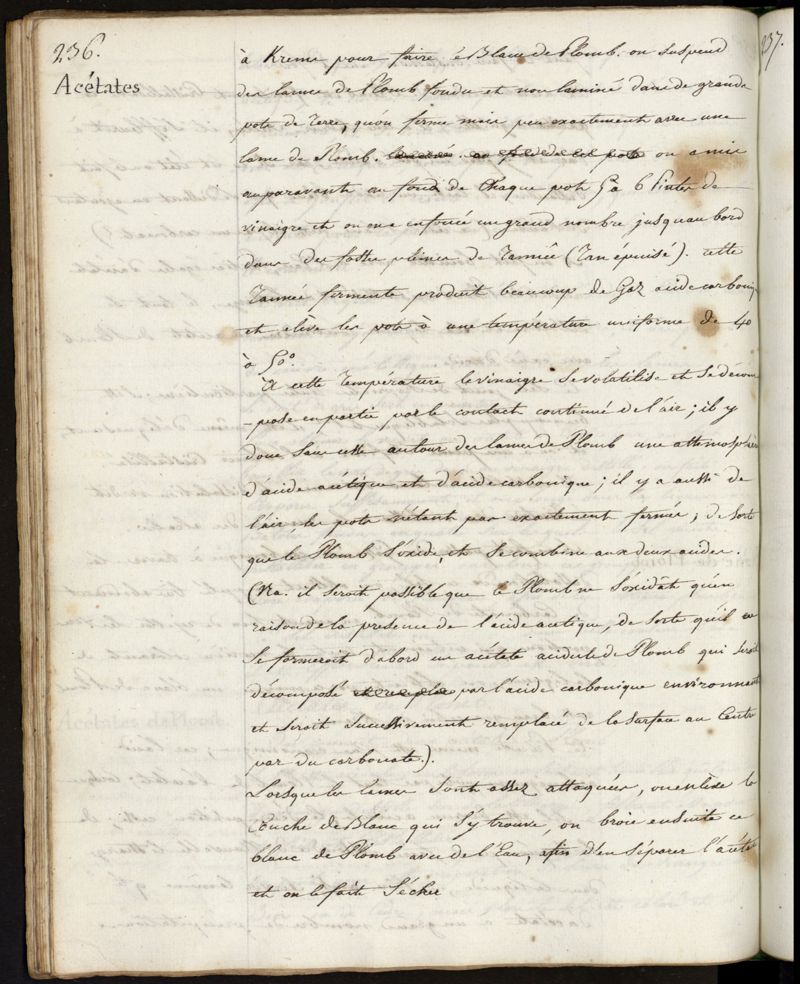 236.
237.
Acétates
à Krems pour faire le Blanc de Plomb. on suspend
des lames de Plomb fondu et non laminé dans de grands
pots de terre, qu'on ferme mais peu exactement avec une
lame de Plomb. on a mis
auparavant au fond de chaque pot 5 a 6 Pintes de
vinaigre et on en a enfoncé un grand nombre jusqu'au bord
dans des fosses pleines de Tannée (Tan épuisé). cette
Tannée fermente produit beaucoup de Gaz acide carboniq
et élève les pots à une température uniforme de 40
à 50°.
A cette Température le vinaigre se volatilise et se décom
-pose en partie par le contact continué de l'air; il y
donc sans cesse autour des lames de Plomb une attmosphère
d'acide acétique et d'acide carbonique; il y a aussi de
l'air, les pots n'étant pas exactement fermés; de sorte
que le Plomb s'oxide, et se combine aux deux acides.
(Na. il seroit possible que le Plomb ne s'oxidât qu'en
raison de la presence de l'acide acetique, de sorte qu'il se
se formeroit d'abord un acétate acidule de Plomb qui seroit
décomposé par l'acide carbonique environnant
et seroit successivement remplacé de la surface au Centre
par du carbonate.).
Lorsque les lames sont assez attaquées, on enlève la
Couche de Blanc qui s'y trouve, on broie ensuite ce
blanc de Plomb avec de l'Eau, afin d'en séparer l'acétate
et on le fait sécher